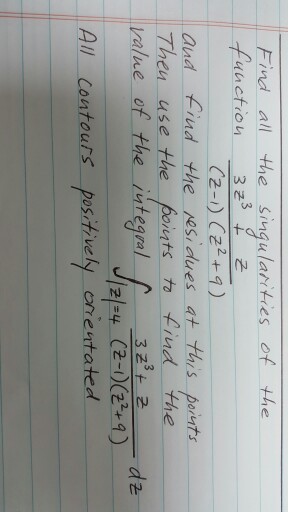 Find all the singularities of the
function (3z³ + z)/((z-1)(z²+9))
and find the residues at this points
Then use the points to find the
value of the integral ∫|z|=4 (3z³ + z)/((z-1)(z²+9)) dz
All contours positively orientated